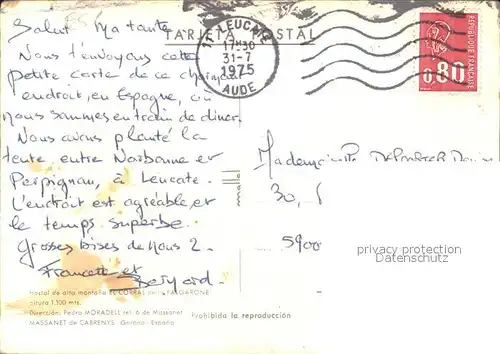 Salut Ma tante
Nous t'envoyons cette
petite carte de ce charmant
endroit, en Espagne, où
nous sommes en train de diner.
Nous avons planté la
tente entre Narbonne et
Perpignan, à Leucate.
L'endroit est agréable et
le temps superbe.
Grosses bises de nous 2.
Francette et
Bernard.
TARJETA POSTAL
11 LEUCATE
17H30
31-7
1975
AUDE
REPUBLIQUE FRANCAISE
0,80
Mademoiselle
30,
5900
privacy protection
Datenschutz
Hostal de alta montaña EL CORRAL
altura 1.100 mts.
Dirección: Pedro MORADELL tel. 6 de Massanet
MASSANET de CABRENYS Gerona - España
Prohibida la reproducción